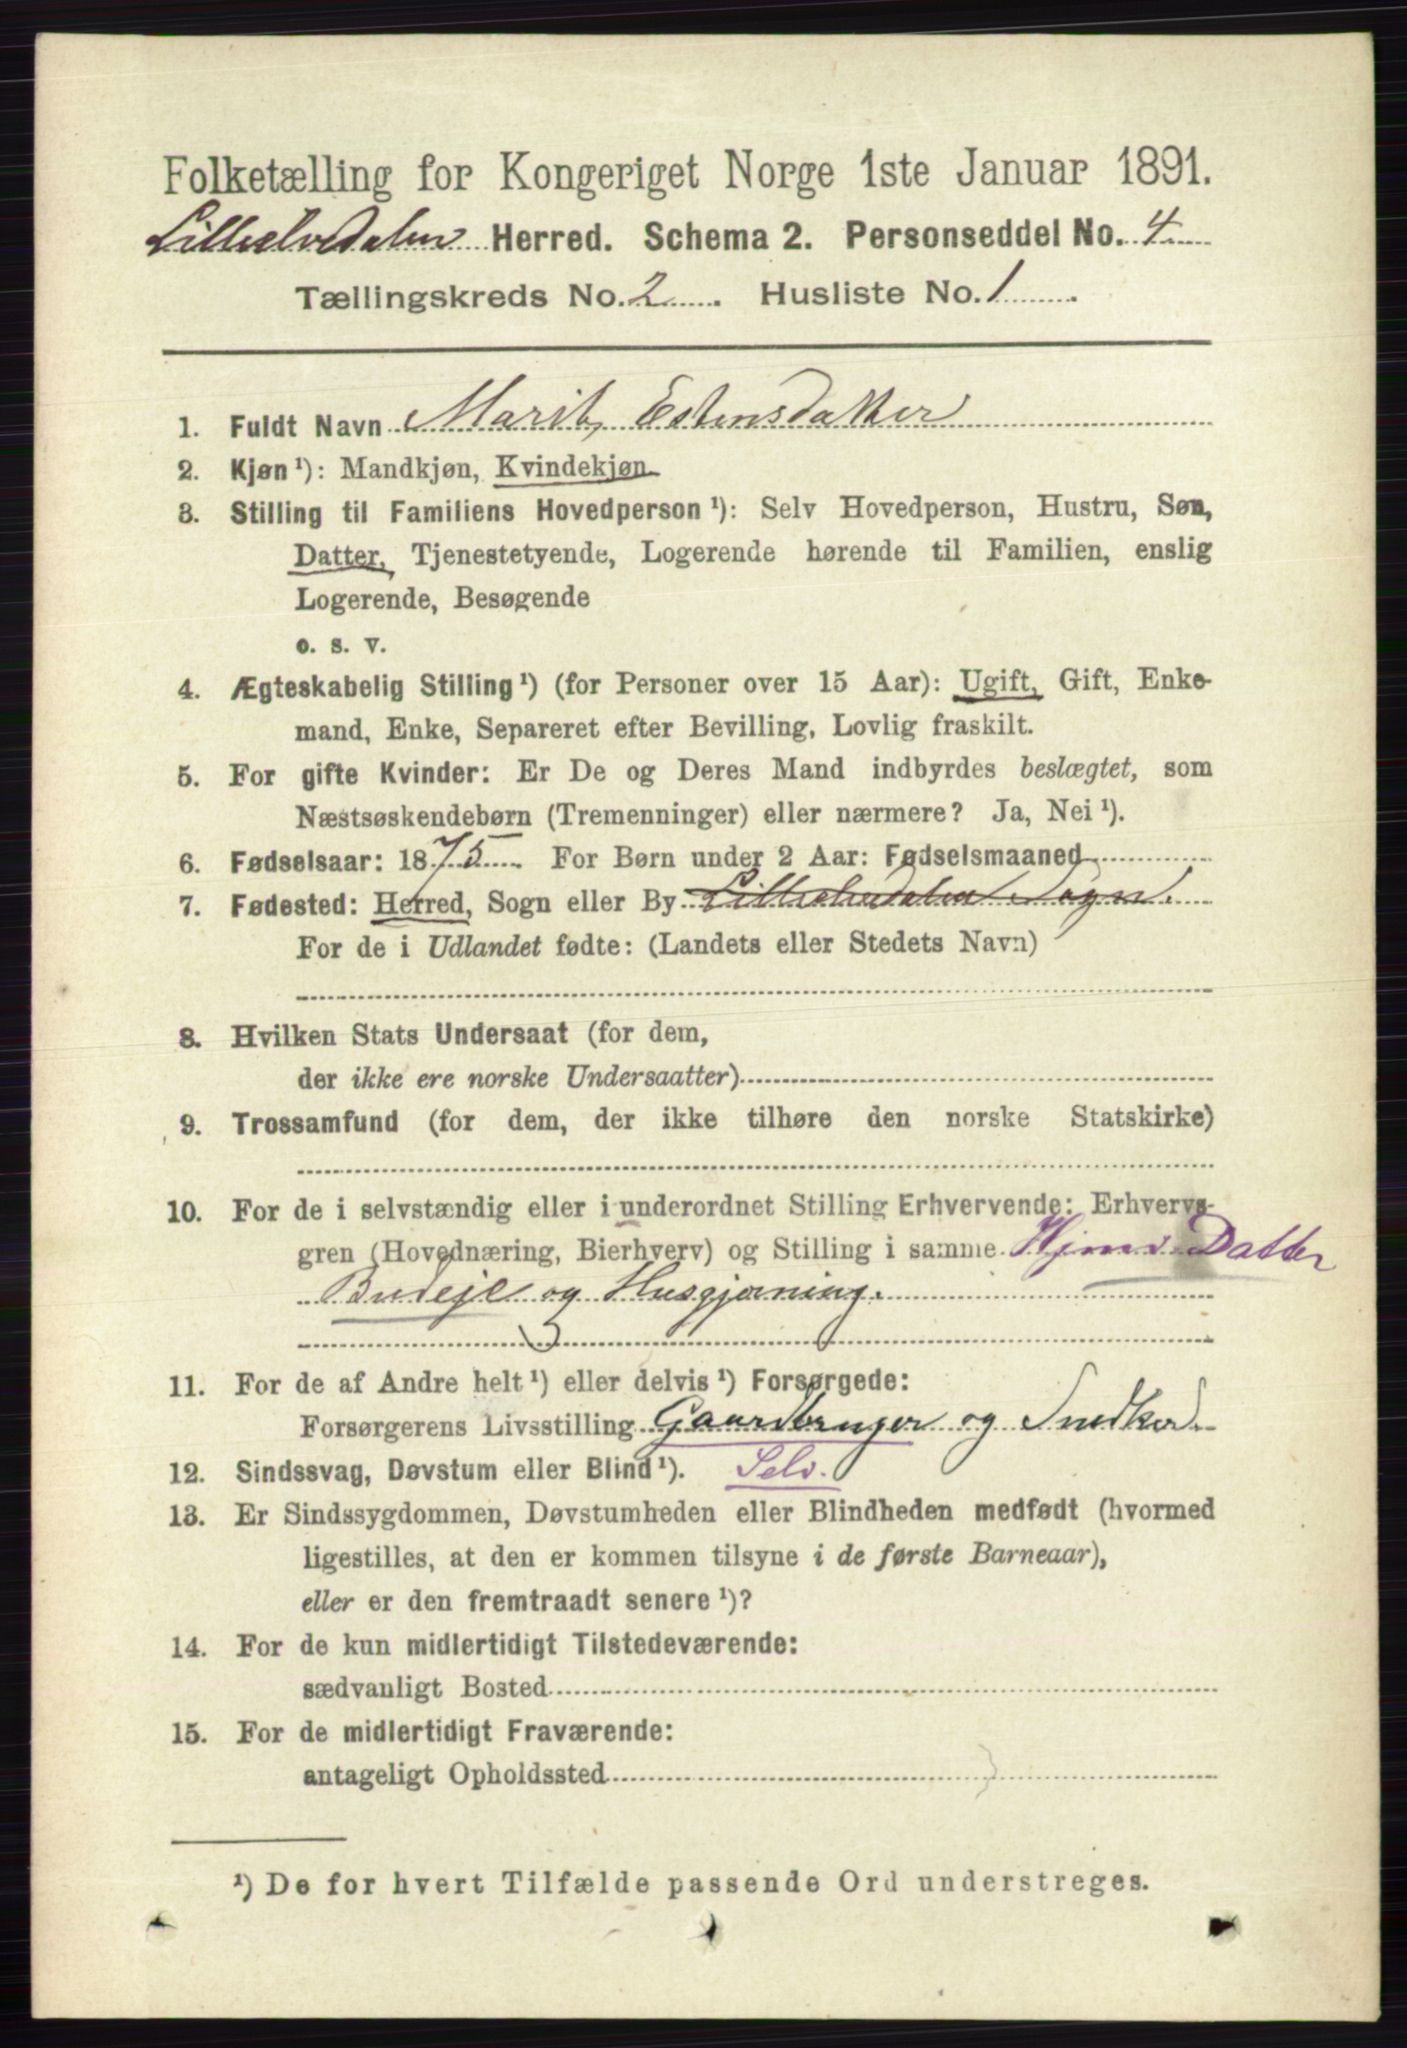 Folketælling for Kongeriget Norge 1ste Januar 1891.
Lilleelvedalen Herred. Schema 2. Personseddel No. 4
Tællingskreds No. 2. Husliste No. 1.
1. Fuldt Navn Marit Estensdatter
2. Kjøn ¹): Mandkjøn, Kvindekjøn
3. Stilling til Familiens Hovedperson ¹): Selv Hovedperson, Hustru, Søn,
Datter, Tjenestetyende, Logerende hørende til Familien, enslig
Logerende, Besøgende
o. s. v.
4. Ægteskabelig Stilling ¹) (for Personer over 15 Aar): Ugift, Gift, Enke-
mand, Enke, Separeret efter Bevilling, Lovlig fraskilt.
5. For gifte Kvinder: Er De og Deres Mand indbyrdes beslægtet, som
Næstsøskendebørn (Tremenninger) eller nærmere? Ja, Nei ¹).
6. Fødselsaar: 1875. For Børn under 2 Aar: Fødselsmaaned
7. Fødested: Herred, Sogn eller By Lilleelvedalen Sogn.
For de i Udlandet fødte: (Landets eller Stedets Navn)
8. Hvilken Stats Undersaat (for dem,
der ikke ere norske Undersaatter)
9. Trossamfund (for dem, der ikke tilhøre den norske Statskirke)
10. For de i selvstændig eller i underordnet Stilling Erhvervende: Erhvervs-
gren (Hovednæring, Bierhverv) og Stilling i samme Hjmv. Datter
Budeje og Husgjerning.
11. For de af Andre helt ¹) eller delvis ¹) Forsørgede:
Forsørgerens Livsstilling Gaardbruger og Snedker
12. Sindssvag, Døvstum eller Blind ¹). Selv.
13. Er Sindssygdommen, Døvstumheden eller Blindheden medfødt (hvormed
ligestilles, at den er kommen tilsyne i de første Barneaar),
eller er den fremtraadt senere ¹)?
14. For de kun midlertidigt Tilstedeværende:
sædvanligt Bosted
15. For de midlertidigt Fraværende:
antageligt Opholdssted
¹) De for hvert Tilfælde passende Ord understreges.